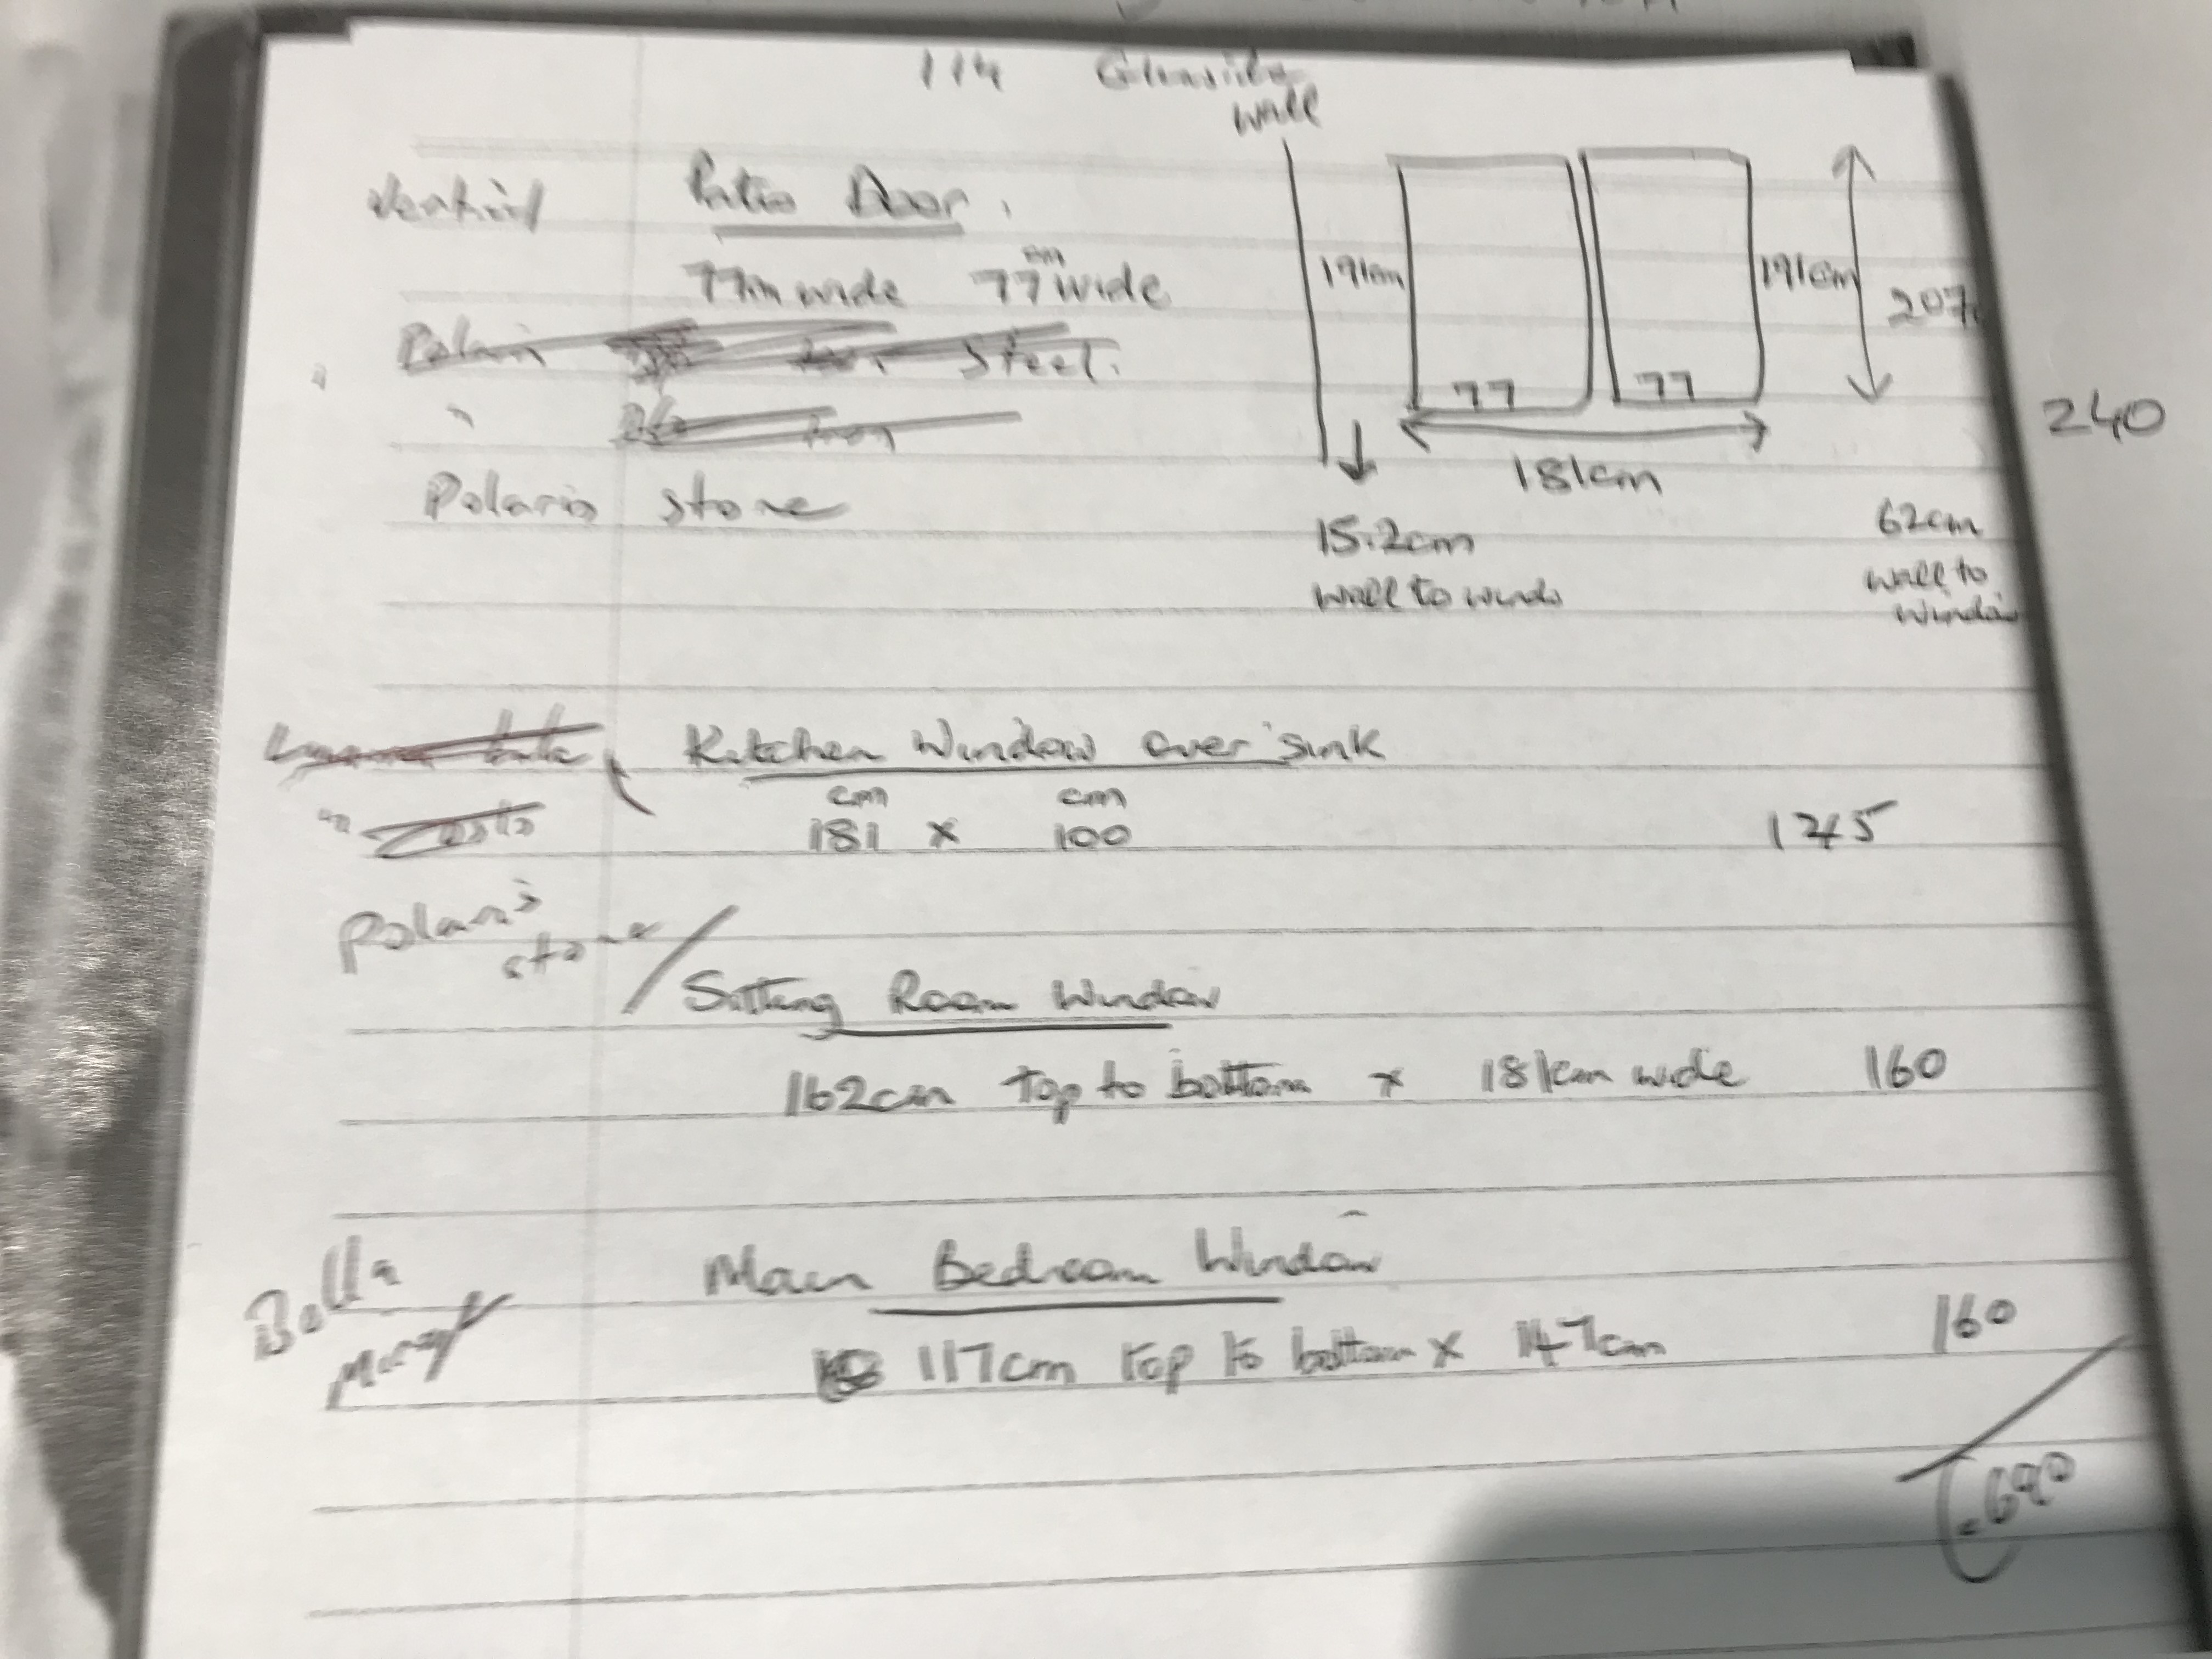 114
wall
Vertical Patio Door.
77cm wide 77cm wide
191cm 191cm 207
Polaris Steel.
77 77
240
181cm
Polaris stone
15.2cm 62cm
wall to windo wall to
window
Kitchen Window over sink
cm cm
181 x 100 1245
Polaris
stone
Sitting Room Window
162cm top to bottom x 181cm wide 160
Bella
Main Bedroom Window
117cm top to bottom x 147cm 160
690